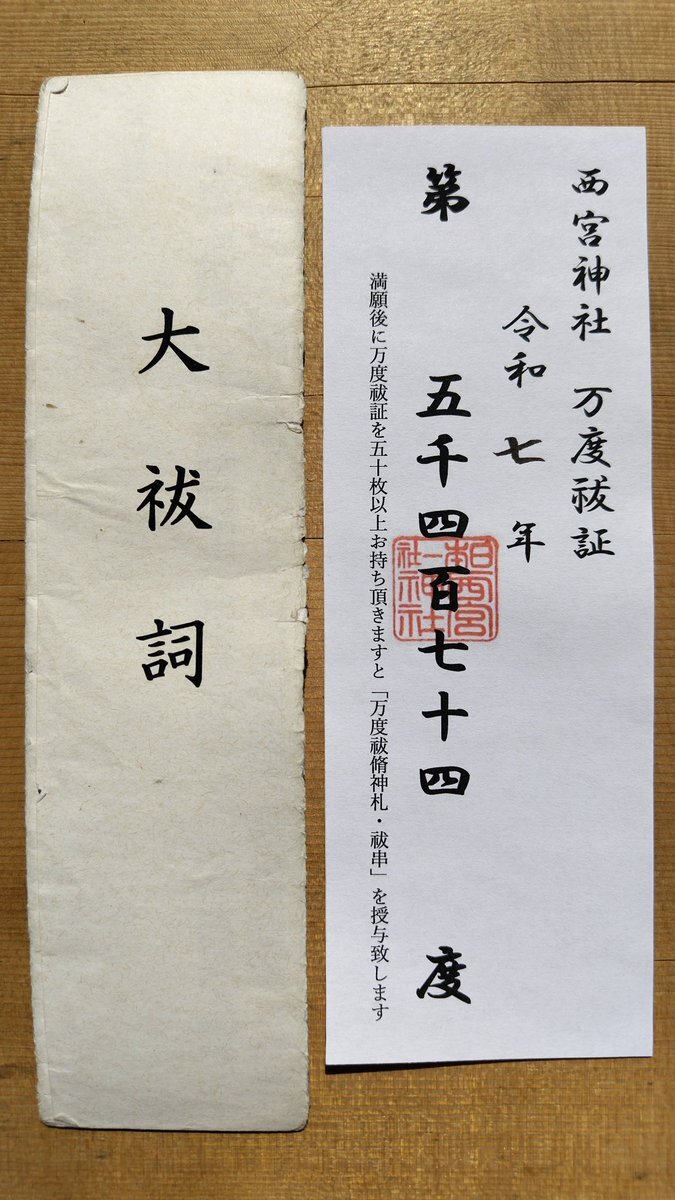 大祓詞
西宮神社 万度祓証
令和 七 年
第 五千四百七十四 度
満願後に万度祓証を五十枚以上お持ち頂きますと「万度祓脩神札・祓串」を授与致します